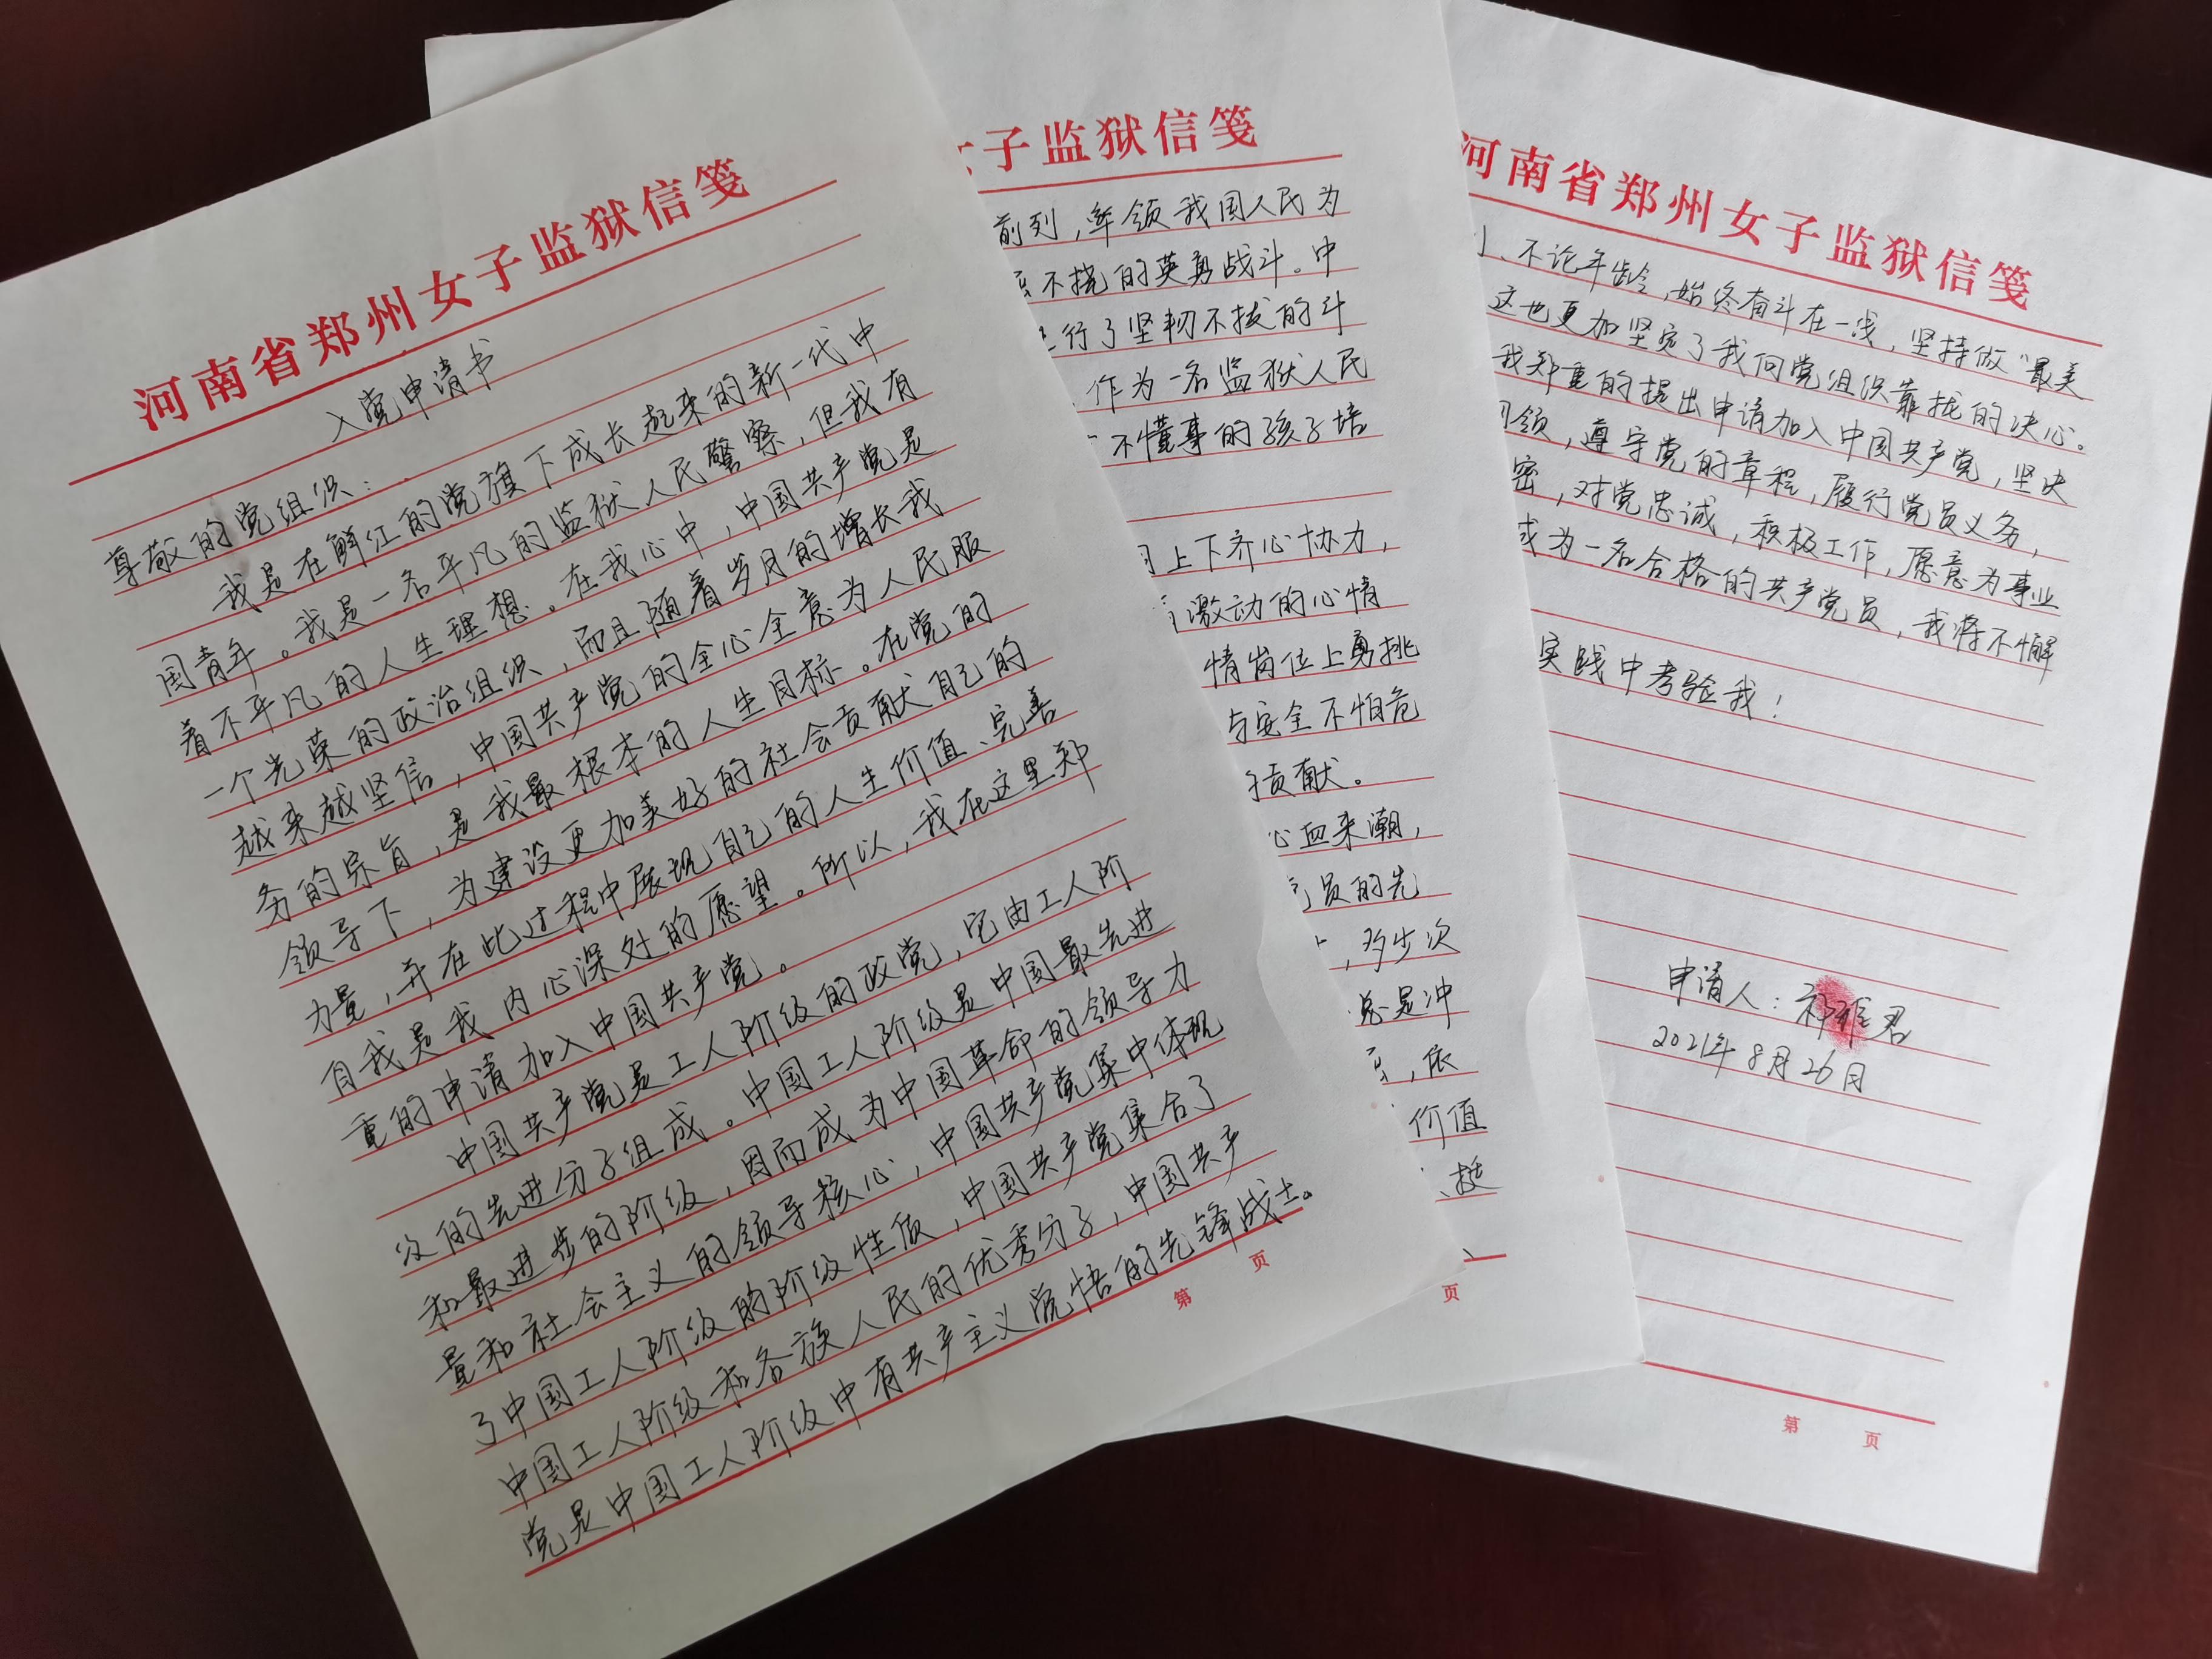 河南省郑州女子监狱信笺
入党申请书
尊敬的党组织：
我是在鲜红的党旗下成长起来的新一代中
国青年。我是一名平凡的监狱人民警察，但我有
着不平凡的人生理想。在我心中，中国共产党是
一个光荣的政治组织，而且随着岁月的增长我
越来越坚信，中国共产党的全心全意为人民服
务的宗旨，是我最根本的人生目标。在党的
领导下，为建设更加美好的社会贡献自己的
力量，并在此过程中展现自己的人生价值、完善
自我是我内心深处的愿望。所以，我在这里郑
重的申请加入中国共产党。
中国共产党是工人阶级的政党，它由工人阶
级的先进分子组成。中国工人阶级是中国最先进
和最进步的阶级，因而成为中国革命的领导力
量和社会主义的领导核心，中国共产党集中体现
了中国工人阶级的阶级性质，中国共产党集合了
中国工人阶级和各族人民的优秀分子，中国共产
党是中国工人阶级中有共产主义觉悟的先锋战士。
第 页
女子监狱信笺
前列，率领我国人民为
不挠的英勇战斗。中
行了坚韧不拔的斗
作为一名监狱人民
不懂事的孩子培
上下齐心协力，
激动的心情
情岗位上勇挑
与安全不怕危
贡献。
心血来潮，
员的先
，多少次
总是冲
，依
价值
、挺
页
河南省郑州女子监狱信笺
、不论年龄，始终奋斗在一线，坚持做“最美
这也更加坚定了我向党组织靠拢的决心。
我郑重的提出申请加入中国共产党，坚决
领，遵守党的章程，履行党员义务，
密，对党忠诚，积极工作，愿意为事业
成为一名合格的共产党员，我将不懈
实践中考验我！
申请人：祁雅君
2021年8月26日
第 页